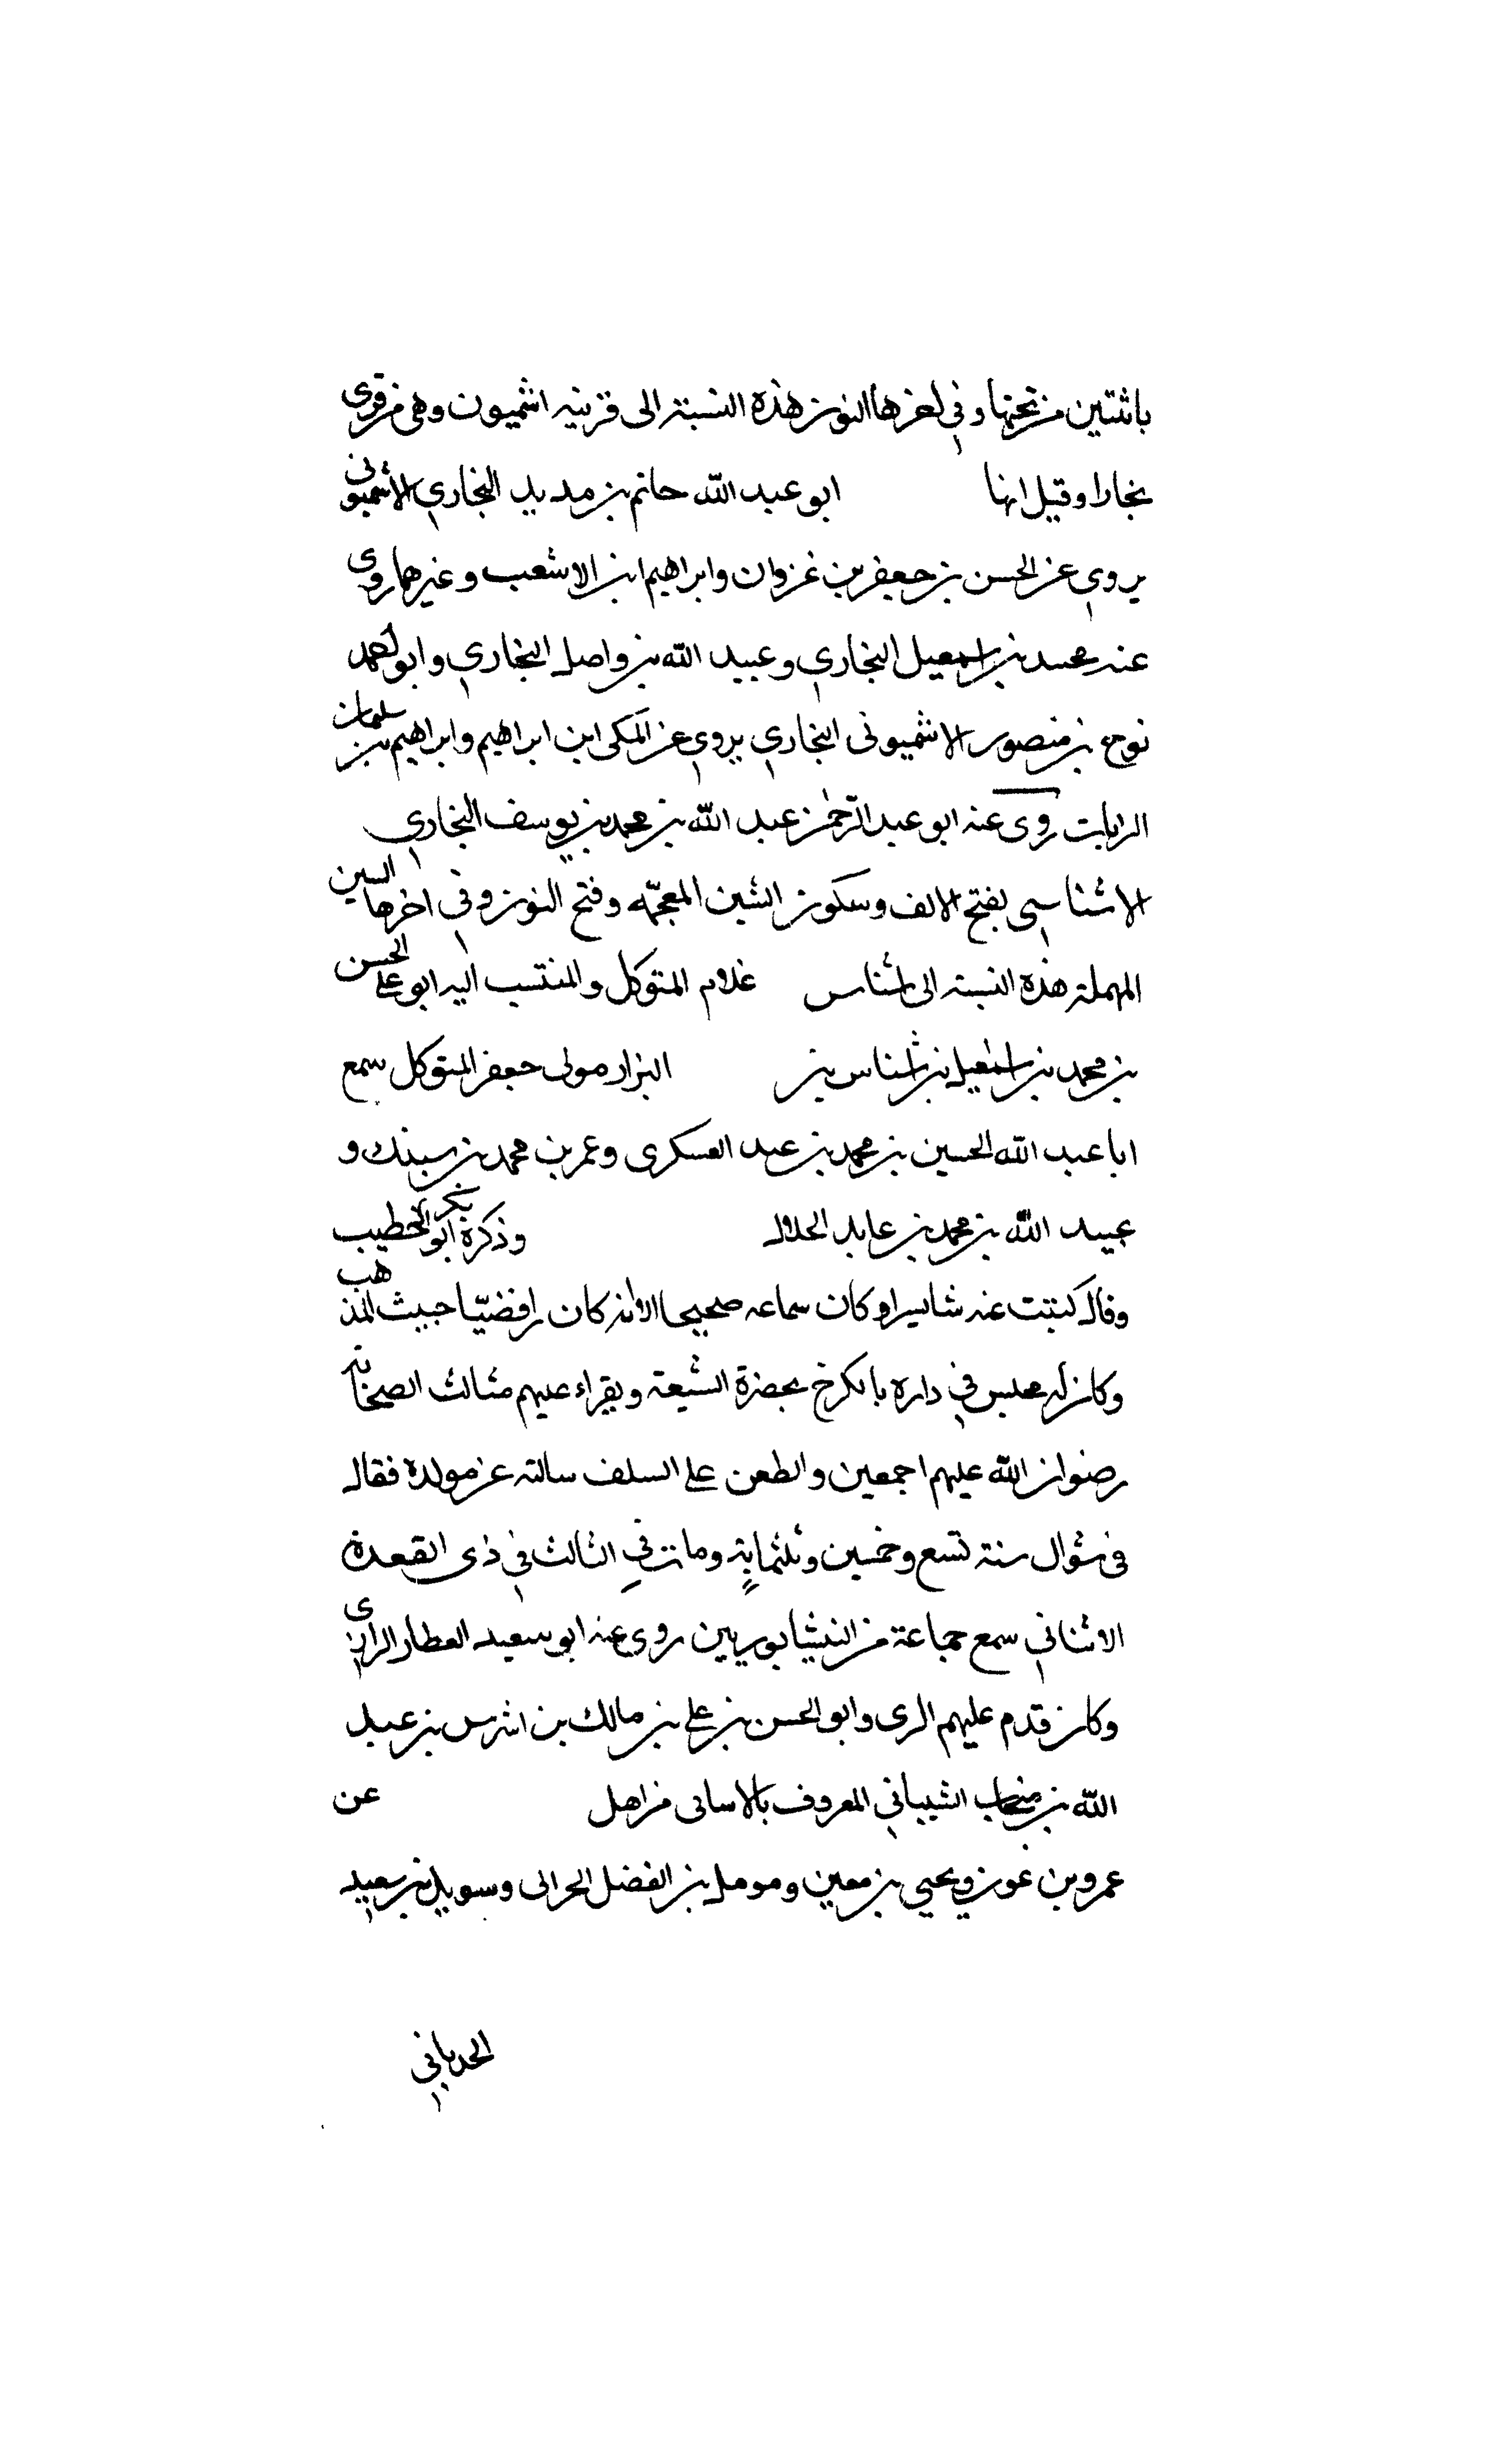 باثنتين من تحتها وفي اخرها النون هذه النسبة الى قرية اشميون وهى من قرى
بخارا وقيل انها ابو عبد الله حاتم بن مديد البخاري الاشميونى
يروي عن الحسن بن جعفر بن غزوان وابراهيم ابن الاشعب وغيرهما روى
عنه محمد بن اسمعيل البخاري وعبيد الله بن واصل البخاري وابو احمد
نوح بن منصور الاشميونى البخاري يروي عن المكى ابن ابراهيم وابراهيم بن سلمان
الرابات روى عنه ابو عبد الرحمن عبد الله بن محمد بن يوسف البخاري
الاشناسي بفتح الالف وسكون الشين المعجمه وفتح النون وفي اخرها السين
المهملة هذه النسبة الى اشناس غلام المتوكل والمنتسب اليه ابو على الحسن
بن محمد بن اسمعيل بن اشناس بن البزار مولى جعفر المتوكل سمع
ابا عبد الله الحسين بن محمد بن عبد العسكرى وعمر بن محمد بن سبنك و
عبيد الله بن محمد بن عابد الحلال وذكره ابو بكر الخطيب
وقال كتبت عنه شا يسيرا وكان سماعه صحيحا الا انه كان رافضيّا خبيث المذهب
وكان له مجلس في داره بالكرخ بحضرة الشيعة ويقراء عليهم مثالث الصحابة
رضوان الله عليهم اجمعين والطعن على السلف سالته عن مولده فقال
فى شوال سنة تسع وخمسين وثلثماية ومات في الثالث في ذى القعدة
الاشناني سمع جماعة من النيشابوريين روى عنه ابو سعيد العطار الرازى
وكان قدم عليهم الرى وابو الحسن بن على بن مالك بن اشرس بن عبد
الله بن منجاب الشيباني المعروف بالاسانى من اهل عن
عمرو بن عون ويحيي بن معين ومومل بن الفضل الحرانى وسويد بن سعيد
الحدثاني